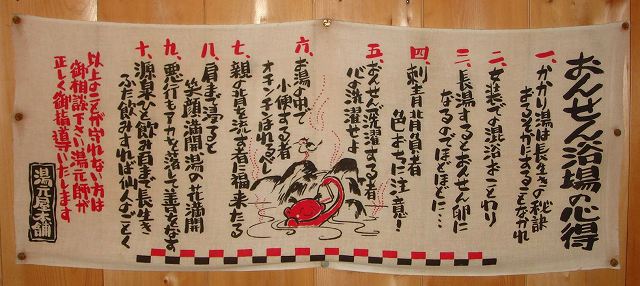 おんせん浴場の心得
一、かかり湯は長生きの秘訣
まるそめにすることなかれ
二、女装での混浴おことわり
三、長湯するとおんせん卵に
なるのでほどほどに…
四、刺青背負う者
色おちに注意!
五、おんせんで洗濯する者
心の洗濯せよ
六、お湯の中で
小便する者
オチンチンはれる心
七、親の背を流す者に福来たる
八、肩まで漬ると
笑顔満開湯の花満開
九、悪行もアカも落して善をなす
十、源泉ひと飲み百まで長生き
ふた飲みすれば仙人のごとく
以上のことが守れない方は
御相談下さい湯元師が
正しく御指導いたします
湯元屋本舗